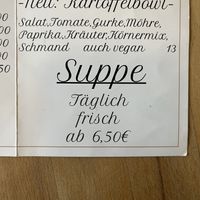 -Neu: Kartoffelbowl-
Salat,Tomate,Gurke,Möhre,
Paprika,Kräuter,Körnermix,
Schmand auch vegan 13
Suppe
Täglich
frisch
ab 6,50€